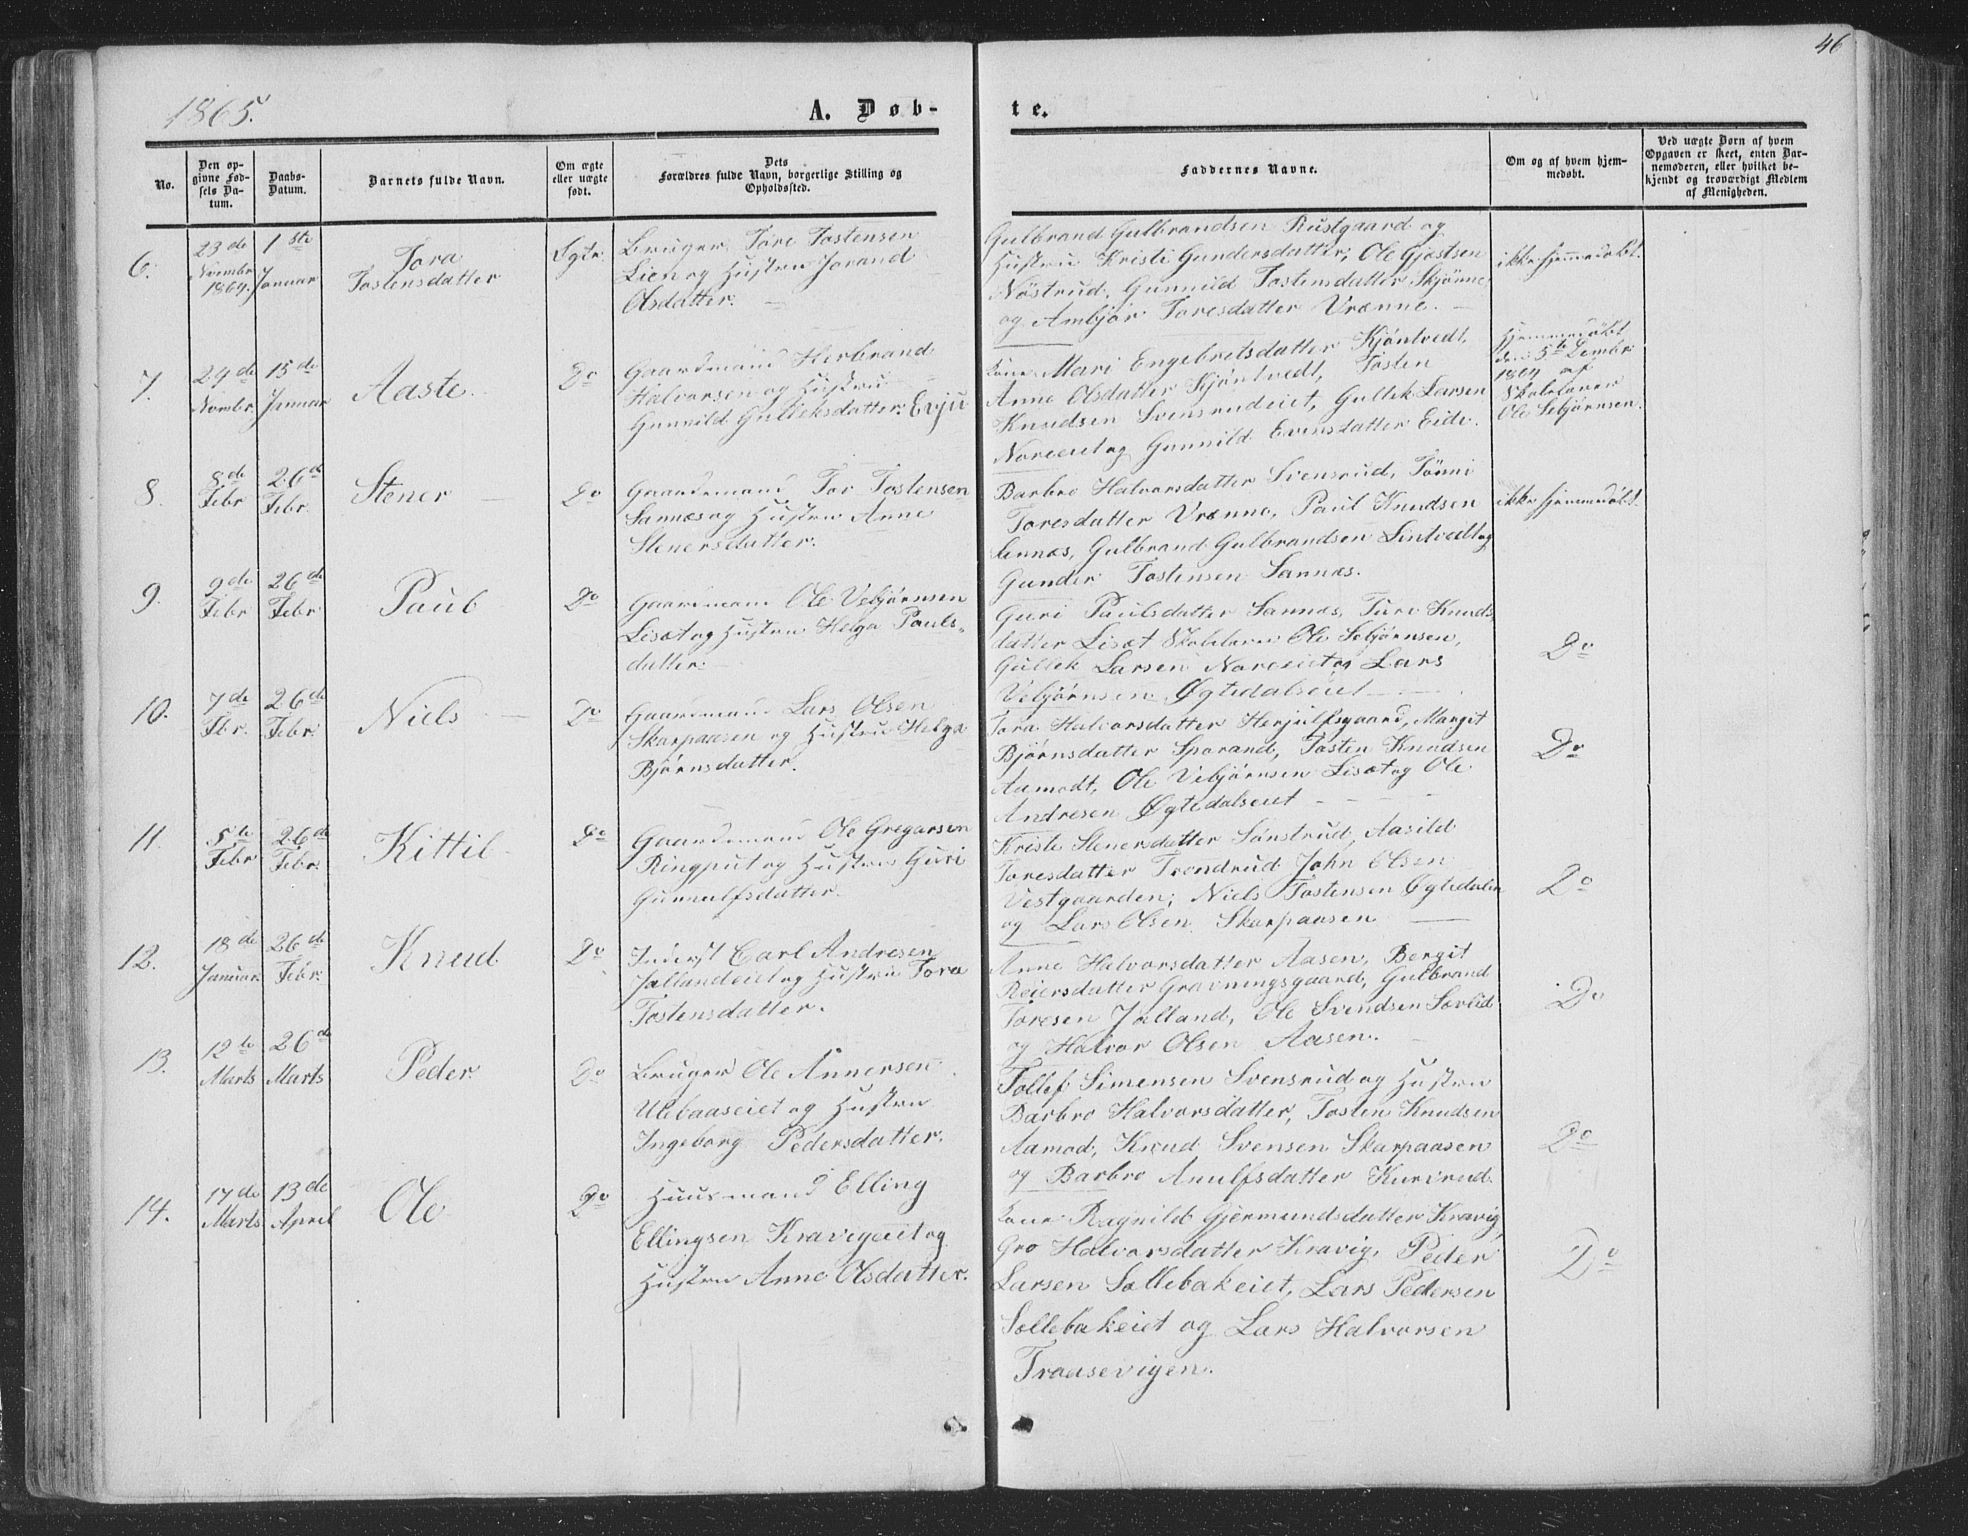 46
1865.
A. Døb-
te.
No.
Den op-
givne Fød-
sels Da-
tum.
Daabs-
Datum.
Barnets fulde Navn.
Om ægte
eller uægte
født.
Dets
Forældres fulde Navn, borgerlige Stilling og
Opholdssted.
Faddernes Navne.
Om og af hvem hjem-
medøbt.
Ved uægte Børn af hvem
Opgaven er skeet, enten Bar-
nemoderen, eller hvilket be-
kjendt og troværdigt Medlem
af Menigheden.
6.
23de
Novembr
1864.
1ste
Januar
Tora
Tostensdatter
Egte.
Bruger Tore Tostensen
Lien og Hustru Jorand
Olsdatter.
Gulbrand Gulbrandsen Rustgaard og
Hustru Kristi Gundersdatter, Ole Gjøstsen
Nøstrud, Gunnild Tostensdatter Skjønne
og Ambjør Toresdatter Vrænne.
ikke hjemmedøbt.
7.
29de
Novmbr
15de
Januar
Aaste.
Do
Gaardmand Herbrand
Halvorsen og Hustru
Gunnild Gulleksdatter Evju
Kone Mari Engebretsdatter Kjøntvedt,
Anne Olsdatter Kjøntvedt, Tosten
Knudsen Svensrudeiet, Gullek Larsen
Noreeiet og Gunnild Evensdatter Eide.
Hjemmedøbt
den 5te Dembr
1864 af
Skolelærer
Ole Sebjørnsen.
8.
8de
Febr
26de
Febr.
Stener
Do
Gaardmand Tor Tostensen
Sannes og Hustru Anne
Stenersdatter.
Barbro Halvorsdatter Svensrud, Tønni
Toresdatter Vrænne, Paul Knudsen
Sannes, Gulbrand Gulbrandsen Lintvedt og
Gunder Tostensen Sannes.
ikke hjemmedøbt.
9.
9de
Febr
26de
Febr
Paul
Do
Gaardmand Ole Vebjørnsen
Liset og Hustru Helga Pouls-
datter.
Guri Paulsdatter Sannes, Turi Knuds
datter Liset Skolelærer Ole Sebjørnsen,
Gullek Larsen Noreeiet og Lars
Vebjørnsen Øgtedalseiet
Do
10.
7de
Fbr.
26de
Febr.
Niels
Do
Gaardmand Lars Olsen
Skarpaasen og Hustru Helga
Bjørnsdatter.
Tora Halvorsdatter Herjulfsgaard, Margit
Bjørnsdatter Sporand, Tosten Knudsen
Aamodt, Ole Vebjørnsen Liset og Ole
Andresen Øgtedalseiet
Do
11.
5te
Febr
26de
Febr.
Kittil
Do
Gaardmand Ole Gregarsen
Ringput og Hustru Guri
Gunnulfsdatter.
Kristi Stenersdatter Sønstrud, Aasild
Toresdatter Trondrud John Olsen
Vestgaarden; Niels Tostensen Øgtedalen
og Lars Olsen Skarpaasen
Do
12.
18de
Januar
26de
Febr.
Knud
Do
Inderst Carl Andresen
Jallandeiet og Hustru Tora
Tostensdatter.
Anne Halvorsdatter Aasen, Bergit
Reiersdatter Gravningsgaard, Gulbrand
Toresen Jalland, Ole Svendsen Sevlid
og Halvor Olsen Aasen.
Do
13.
12te
Marts
26de
Marts
Peder
Do
Bruger Ole Annersen
Ulebaaseiet og Hustru
Ingeborg Pedersdatter.
Tollef Simensen Svensrud og Hustru
Barbro Halvorsdatter, Tosten Knudsen
Aamod, Knud Svensen Skarpaasen
og Barbro Anulfsdatter Kurvrud.
Do
14.
17de
Marts
13de
April
Ole
Do
Huusmand Elling
Ellingsen Kravigeiet og
Hustru Anne Olsdatter.
Kone Ragnild Gjermundsdatter Kravig,
Gro Halvorsdatter Kravig, Peder
Larsen Sollebakeiet, Lars Pedersen
Sollebakeiet og Lars Halvorsen
Traasevigen.
Do